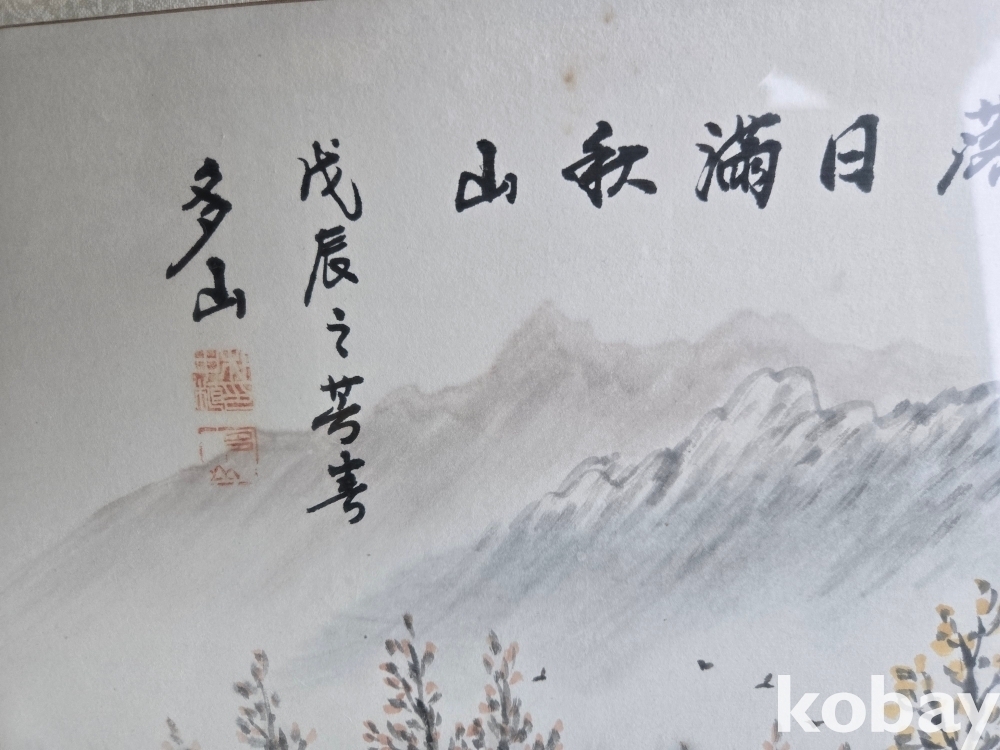 落日滿秋山
戊辰之春
多山
kobay